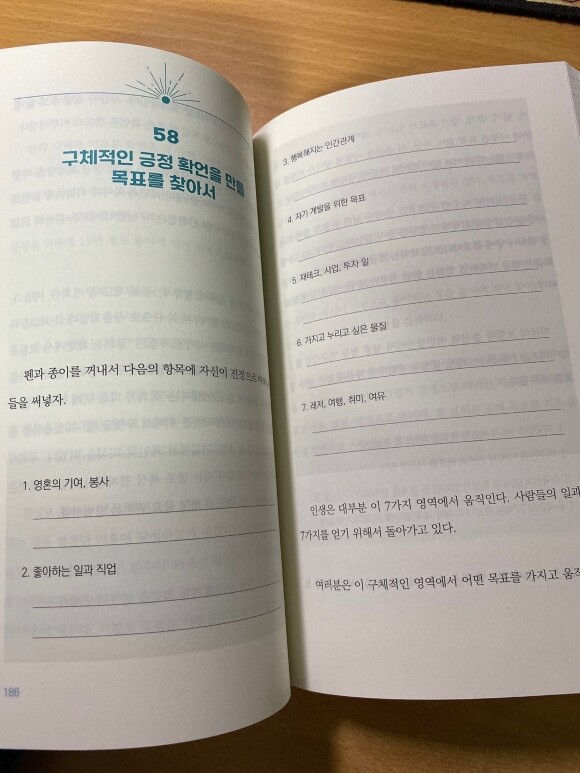 58
구체적인 긍정 확언을 만들
목표를 찾아서
펜과 종이를 꺼내서 다음의 항목에 자신이 진정으로
들을 써넣자.
1. 영혼의 기여, 봉사
2. 좋아하는 일과 직업
186
3. 행복해지는 인간관계
4. 자기 계발을 위한 목표
5. 재테크, 사업, 투자 일
6. 가지고 누리고 싶은 물질
7. 레저, 여행, 취미, 여유
인생은 대부분 이 7가지 영역에서 움직인다. 사람들의 일과
7가지를 얻기 위해서 돌아가고 있다.
여러분은 이 구체적인 영역에서 어떤 목표를 가지고 움직